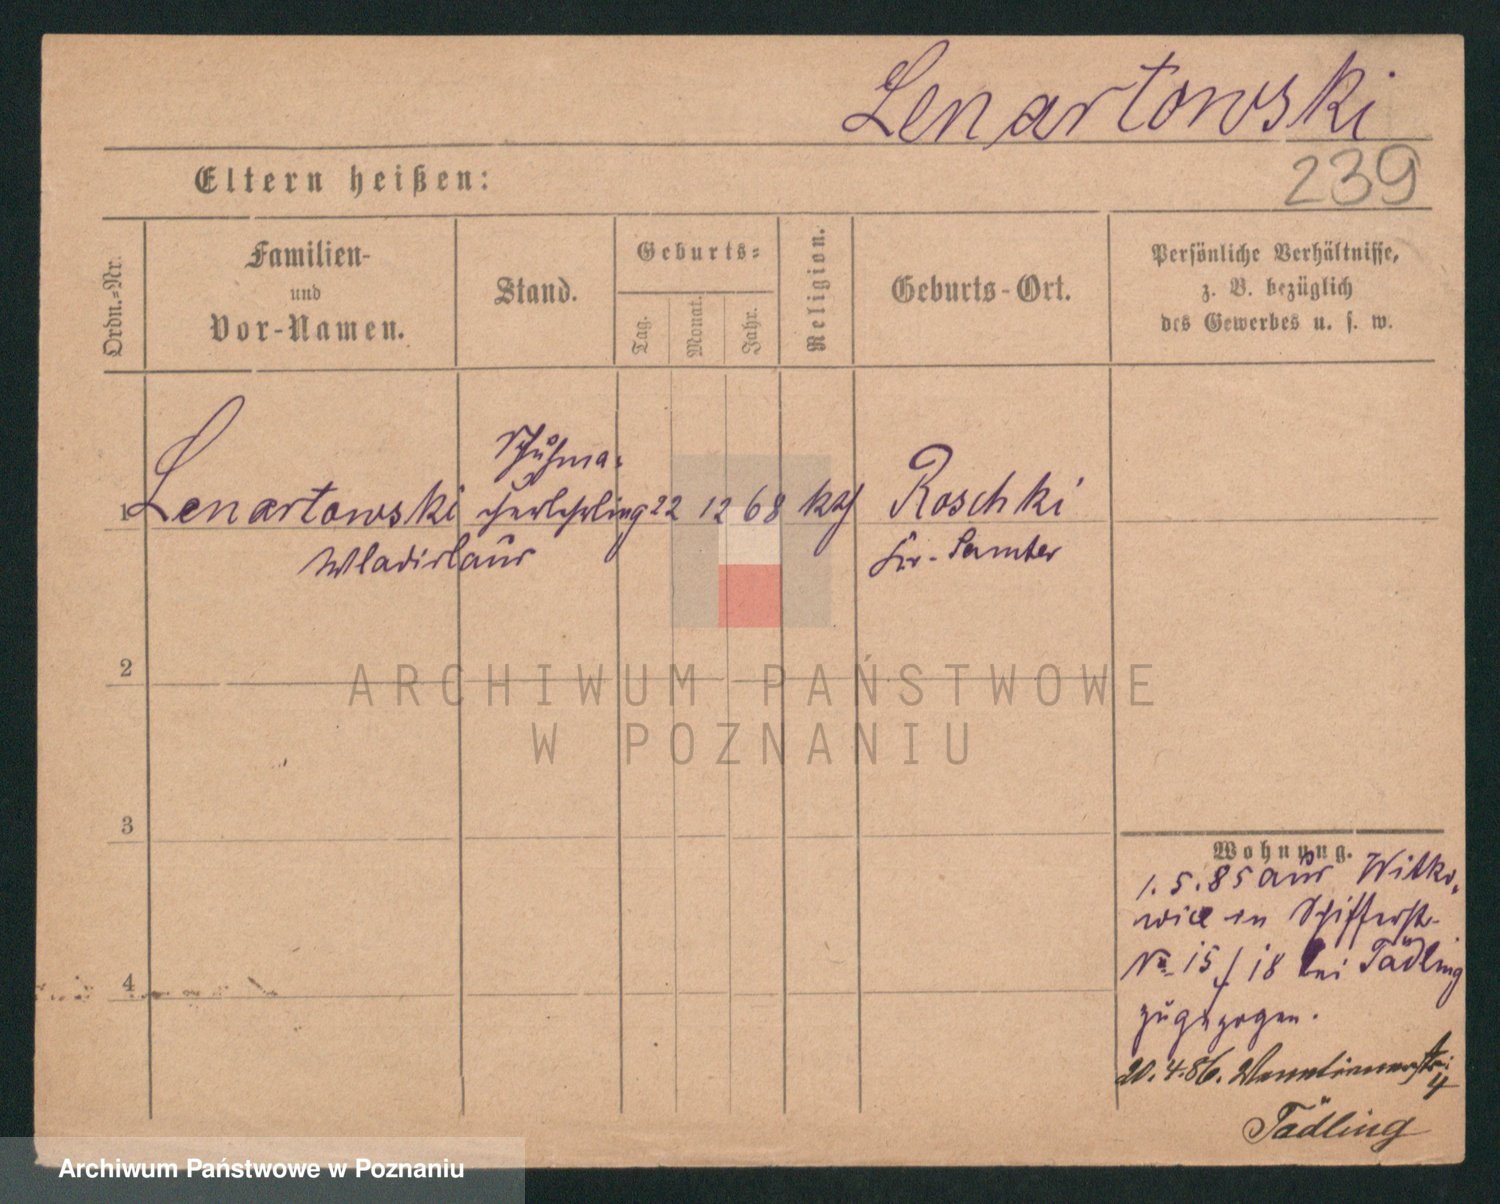 Lenartowski
239
Eltern heißen:
Ordn.-Nr.
Familien-
und
Vor-Namen.
Stand.
Geburts-
Tag.
Monat.
Jahr.
Religion.
Geburts-Ort.
Persönliche Verhältnisse,
z. B. bezüglich
des Gewerbes u. s. w.
1 Lenartowski Schuhma-
cherlehrling 22 12 68 kth Roschki
Wladislaus Kr. Samter
2
ARCHIWUM PAŃSTWOWE
W POZNANIU
3
Wohnung.
1.5.85 aus Witko-
wice in Schifferst.
No 15/18 bei Tädling
zugezogen.
4
20.4.86. 4
Tädling
Archiwum Państwowe w Poznaniu